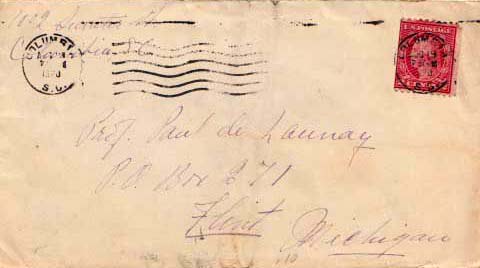 Columbia S.C.
COLUMBIA
1920
S.C.
U.S. POSTAGE
Prof. Paul de Launay
P.O. Box 271
Flint
Michigan